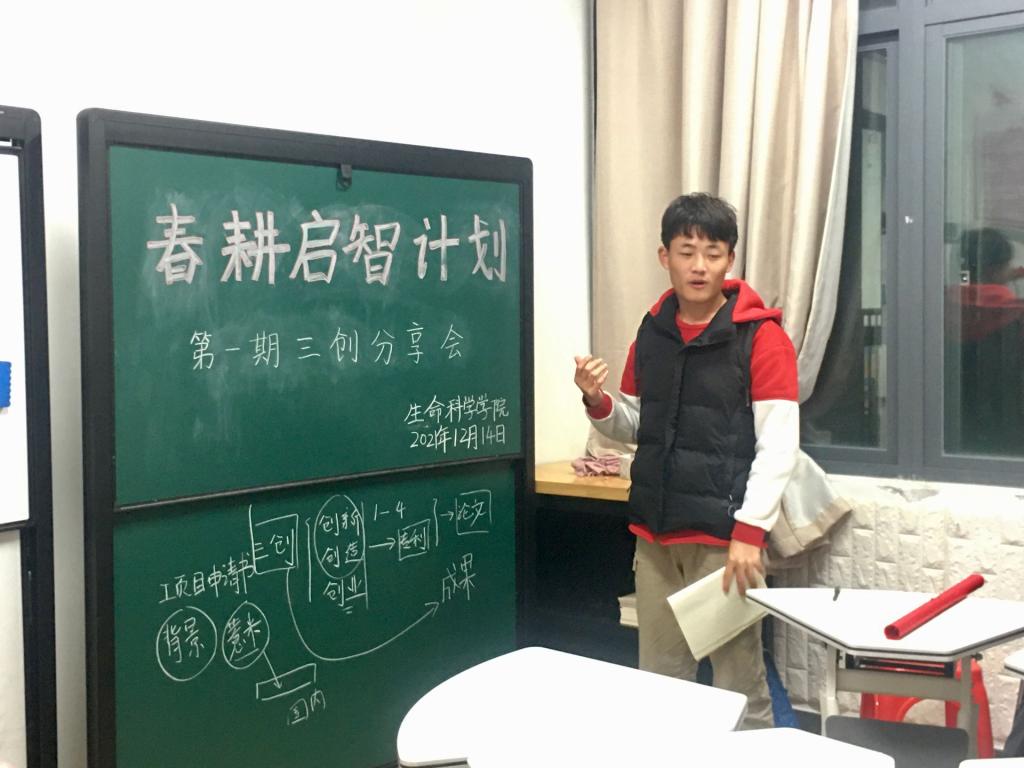 春耕启智计划
第一期三创分享会
生命科学学院
2021年12月14日
三创
创新
创造
创业
1-4
专利
论文
成果
项目申请书
背景
意米
国内